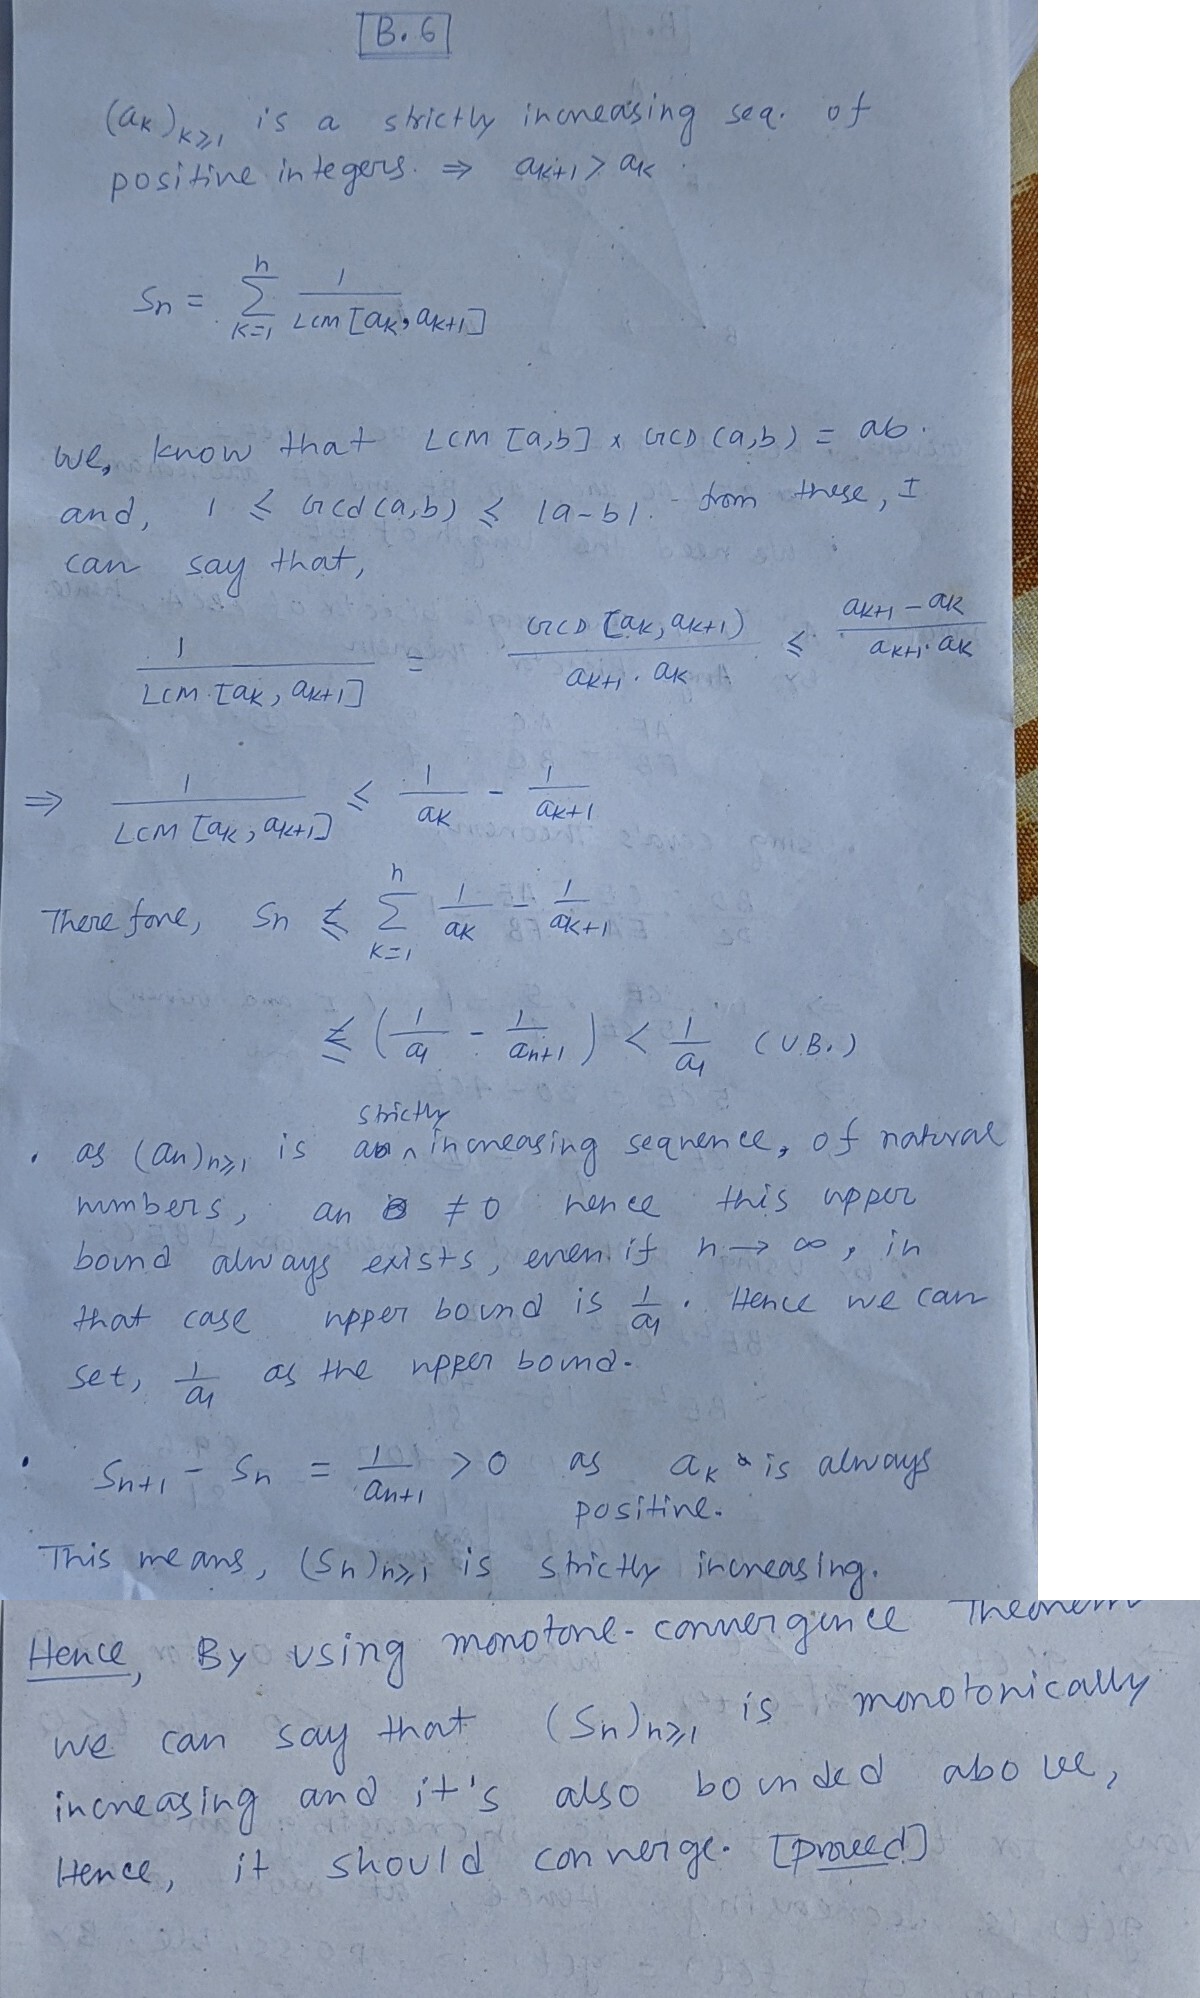 B.6
(aₖ)ₖ≥₁ is a strictly increasing seq. of
positive integers. ⇒ aₖ₊₁ > aₖ.
Sn = ∑_{k=1}^{n} 1/LCM[aₖ, aₖ₊₁]
We, know that LCM[a,b] × GCD(a,b) = ab.
and, 1 ≤ Gcd(a,b) ≤ |a-b|. from these, I
can say that,
1/LCM.[aₖ, aₖ₊₁] = GCD[aₖ, aₖ₊₁)/(aₖ₊₁ . aₖ) ≤ (aₖ₊₁ - aₖ)/(aₖ₊₁ . aₖ)
⇒ 1/LCM[aₖ, aₖ₊₁] ≤ 1/aₖ - 1/aₖ₊₁
Therefore, Sn ≤ ∑_{k=1}^{n} 1/aₖ - 1/aₖ₊₁
≤ (1/a₁ - 1/aₙ₊₁) < 1/a₁ (U.B.)
• as (an)n≥1 is strictly increasing sequence, of natural
numbers, an ≠ 0 hence this upper
bound always exists, even if n → ∞, in
that case upper bound is 1/a₁. Hence we can
set, 1/a₁ as the upper bound.
• Sn+1 - Sn = 1/aₙ₊₁ > 0 as aₖ is always
positive.
This means, (Sn)n≥1 is strictly increasing.
Hence, By using monotone-convergence Theorem
we can say that (Sn)n≥1 is monotonically
increasing and it's also bounded above,
Hence, it should converge. [proved]